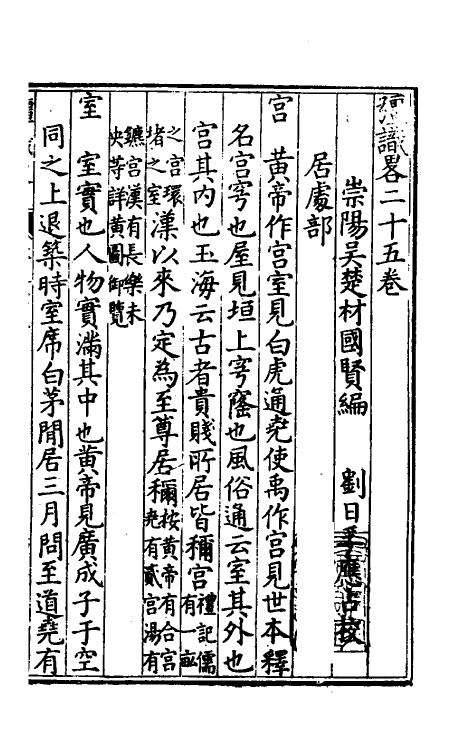 彊識畧二十五卷
崇陽吳楚材國賢編 劉日 應占校
居處部
宮 黃帝作宮室見白虎通堯使禹作宮見世本釋
名宮穹也屋見垣上穹窿也風俗通云室其外也
宮其內也玉海云古者貴賤所居皆稱宮禮記儒有一畝
之宮環堵之室漢以來乃定為至尊居稱按黃帝有合宮堯有貳宮湯有
鑣宮漢有長樂未央等詳黃圖御覽
室 室實也人物實滿其中也黃帝見廣成子于空
同之上退築時室席白茅閒居三月問至道堯有